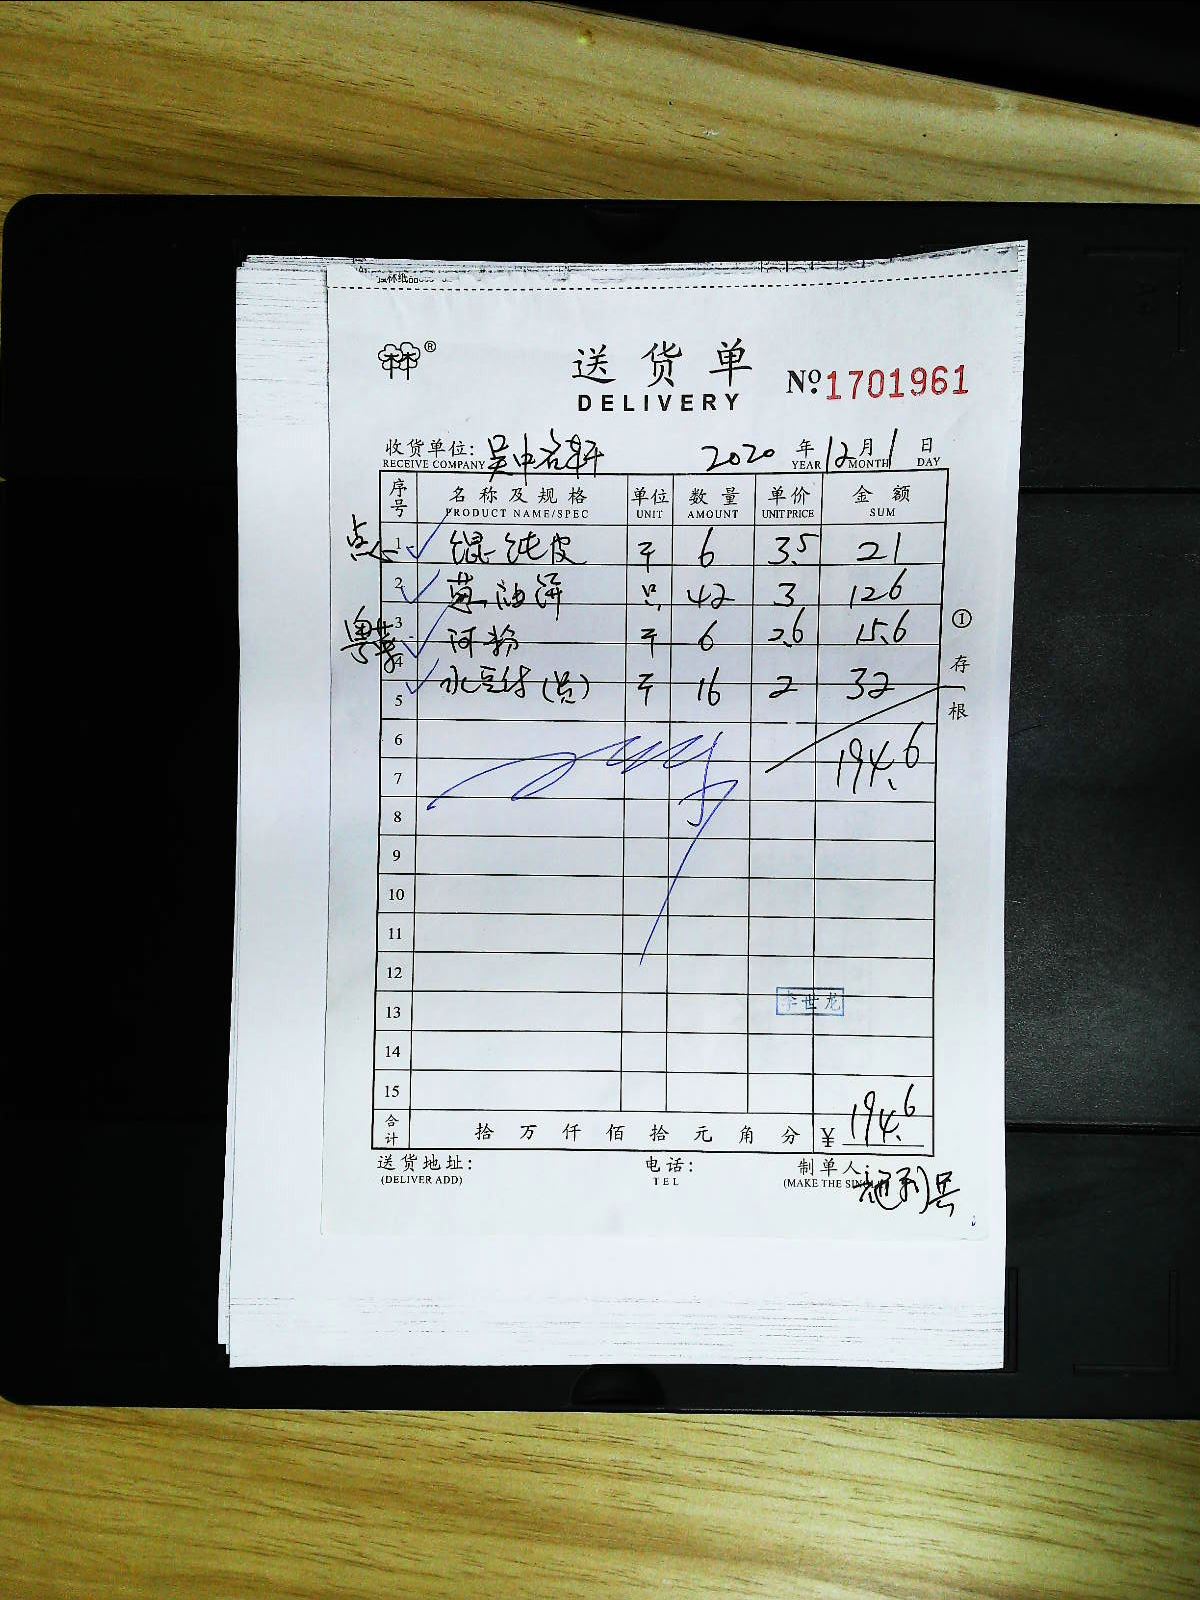 送货单 №1701961
DELIVERY
收货单位: 吴中名轩 2020 年 12 月 1 日
RECEIVE COMPANY YEAR MONTH DAY
序号 名称及规格 单位 数量 单价 金额
PRODUCT NAME/SPEC UNIT AMOUNT UNIT PRICE SUM
点心 1 馄饨皮 斤 6 3.5 21
2 葱油饼 只 42 3 126
粤菜 3 河粉 斤 6 2.6 15.6
4
5 水豆付 斤 16 2 32
6 194.6
7
8
9
10
11
12
13 李世龙
14
15
合计 拾 万 仟 佰 拾 元 角 分 ¥ 194.6
送货地址: 电话: 制单人:
(DELIVER ADD) TEL (MAKE THE
① 存根